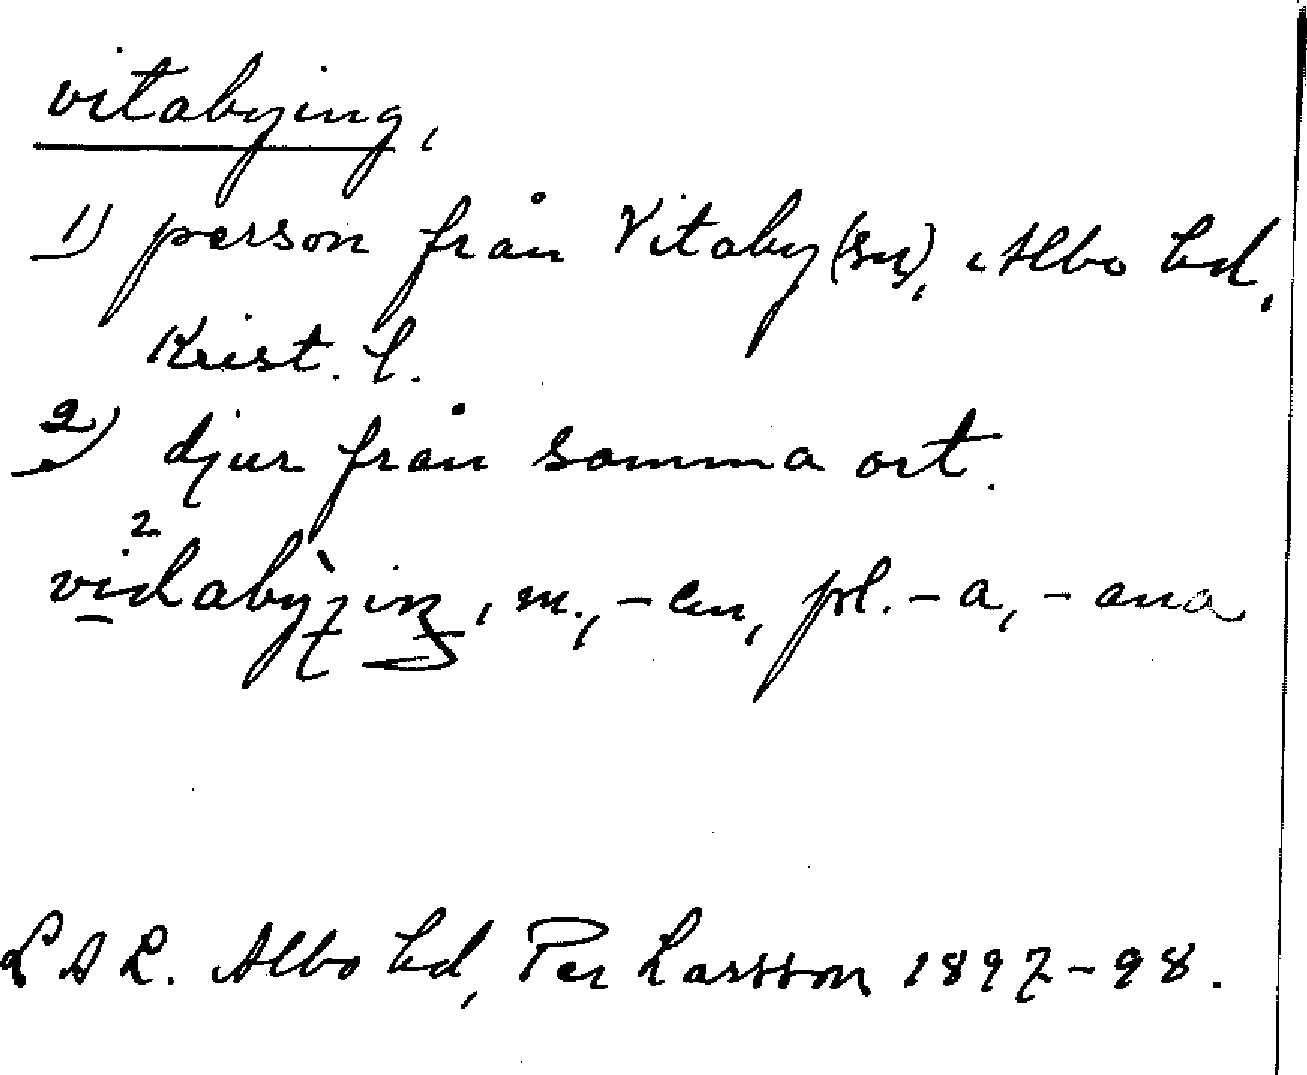 vitabying,
1) person från Vitaby (sn), Albo hd,
Krist. l.
2) djur från samma ort.
m., -en, pl. -a, -ana
LAL. Albo hd, Per Larsson 1897-98.